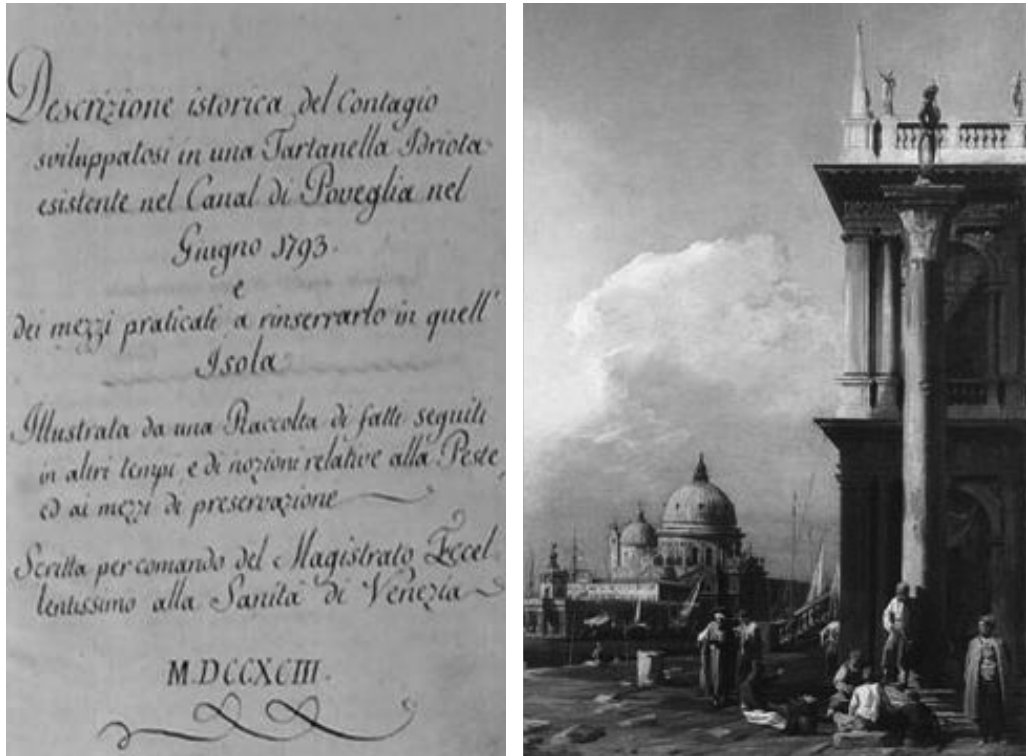 Descrizione istorica del Contagio
sviluppatosi in una Tartanella Idriota
esistente nel Canal di Poveglia nel
Giugno 1793.
e
dei mezzi praticati a rinserrarlo in quell'
Isola
Illustrata da una Raccolta di fatti seguiti
in altri tempi, e di nozioni relative alla Peste,
ed ai mezzi di preservazione
Scritta per comando del Magistrato Eccel-
lentissimo alla Sanità di Venezia
M.DCCXCIII.